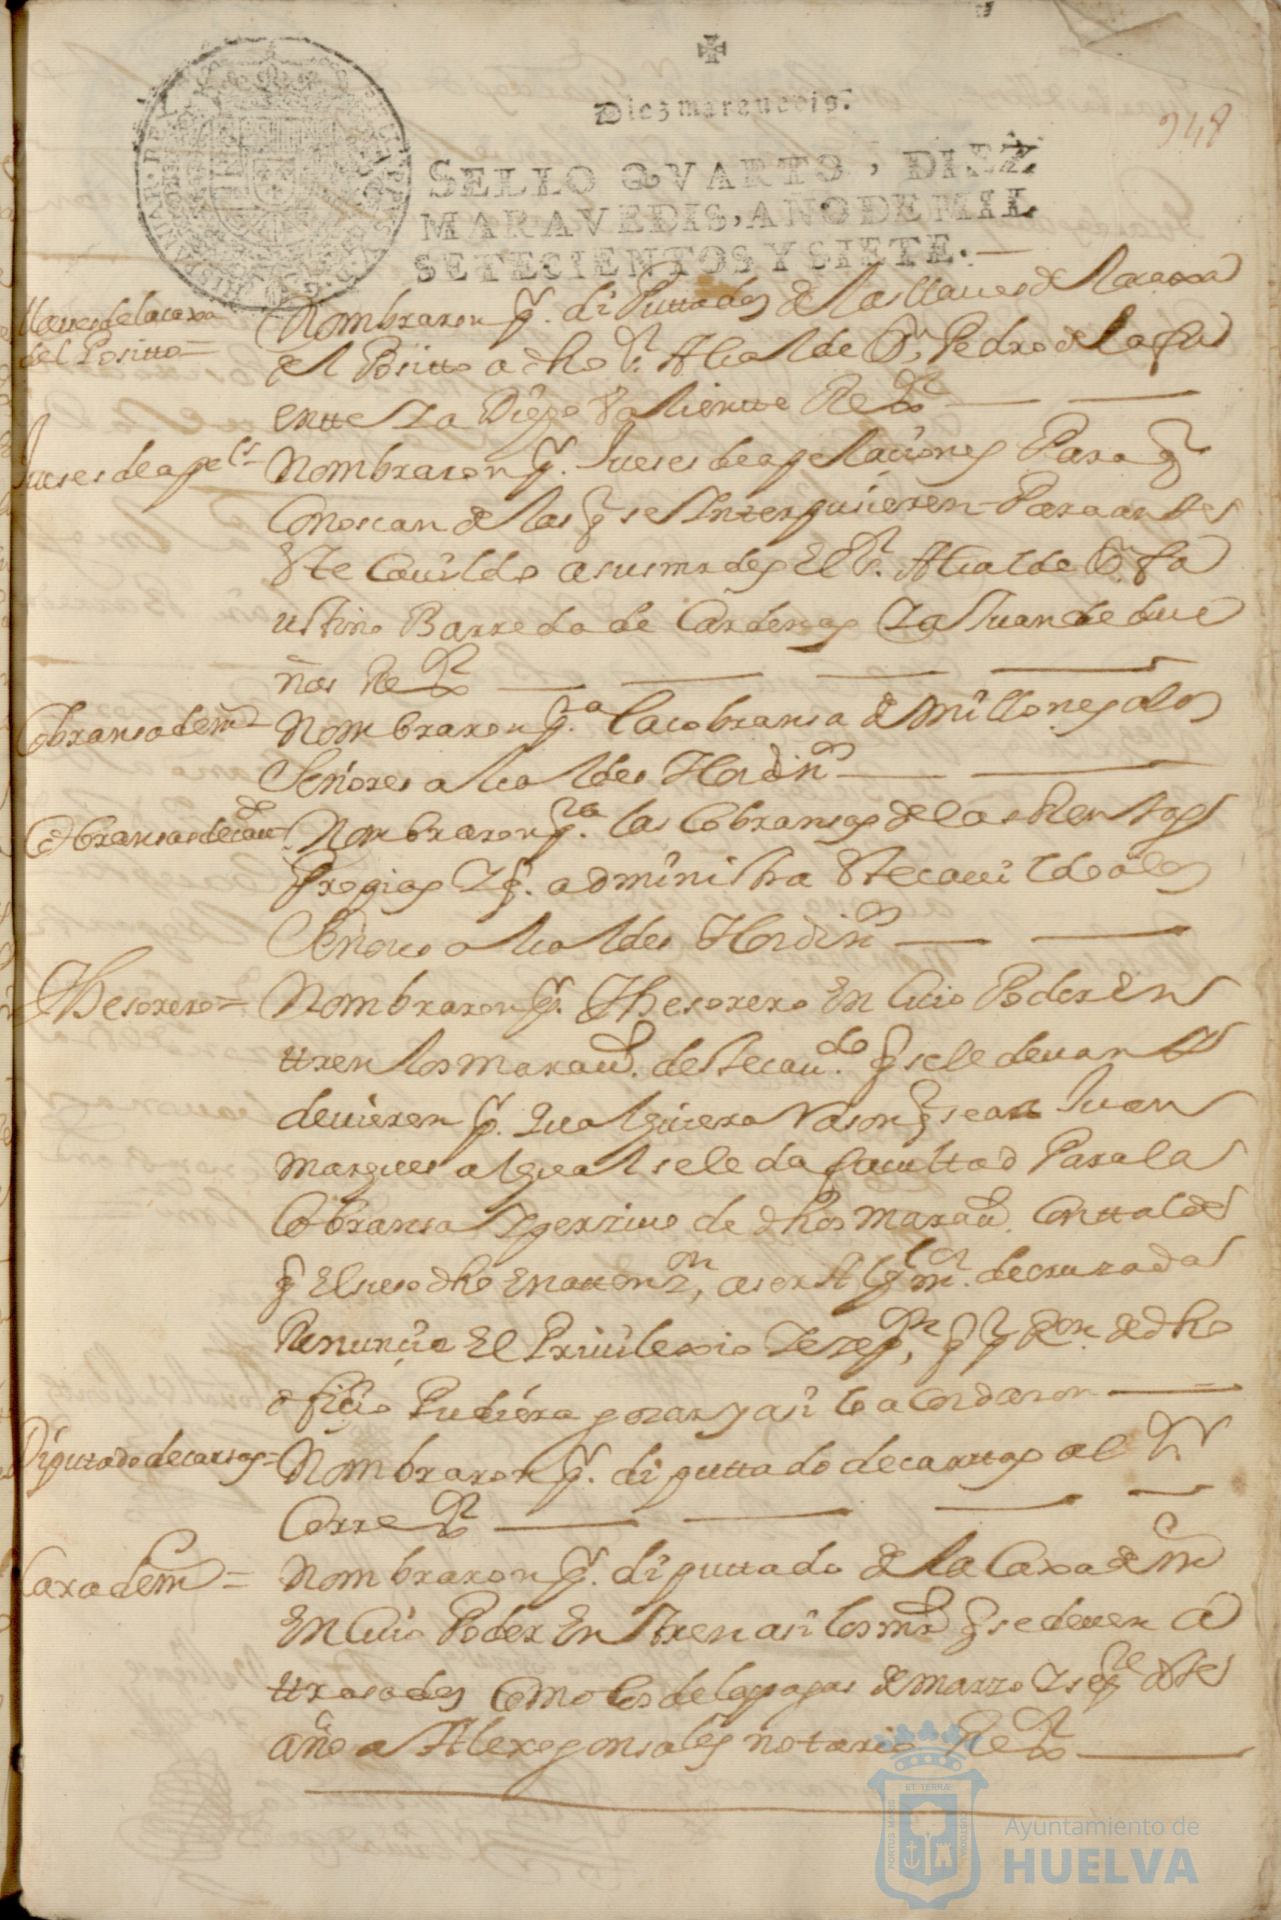 Diez marauedis.
948
SELLO QVARTO, DIEZ
MARAVEDIS, AÑO DE MIL
SETECIENTOS Y SIETE.
llaues de la caxa
del Positto =
Nombraron pr. diputtados de las llaues de la caxa
del Positto a dho sr. Alcalde Dn Pedro de la fu
entte Ya Diego Valientte Rexor
Jueses de apels =
Nombraron pr. Jueses de apelaciones Para q
Conoscan de las q se Interpusieren Para antes
Este Cauildo a sus mrdes El sr. Alcalde Dn fa
ustino Barreda de Cardenas Ya Juan de due
ñas Rexor
Cobransa de mill =
Nombraron pa. la cobransa de millones a los
Señores alcaldes Hordins
Cobransas de cauo =
Nombraron pra. las Cobransas de las Renttas
Propias Y q. administra Este cauildo a los
Señores alcaldes Hordins
Thesorero =
Nombraron pr. Thesorero En Cuio Poder En
ttren los marauds. deste caudo. q se le deuan Y
deuieren pr. qualquiera rason q sea a Juan
Marques al qual se le da facultad Para la
Cobransa Y perziuo de dhos maraud. Conttal de
q El suso dho En atten on, a ser Alg m. de cruzada
Renuncie El Priuilexio q pr Ron. de dho
oficio Pudiera gozar y asi lo acordaron
Diputado de cartas =
Nombraron pr. diputtado de carttas al sr
Correxor
Caxa de mr =
Nombraron pr. diputtado de la Caxa de mr
En Cuio Poder Enttren asi los mrs q se deuen a
ttrasados Como los de las pagas de marzo Y septe deste
año a Alexo gonsales notario Rexor
ET TERRÆ
PORTUS MARIS
CUSTODIA
Ayuntamiento de
HUELVA